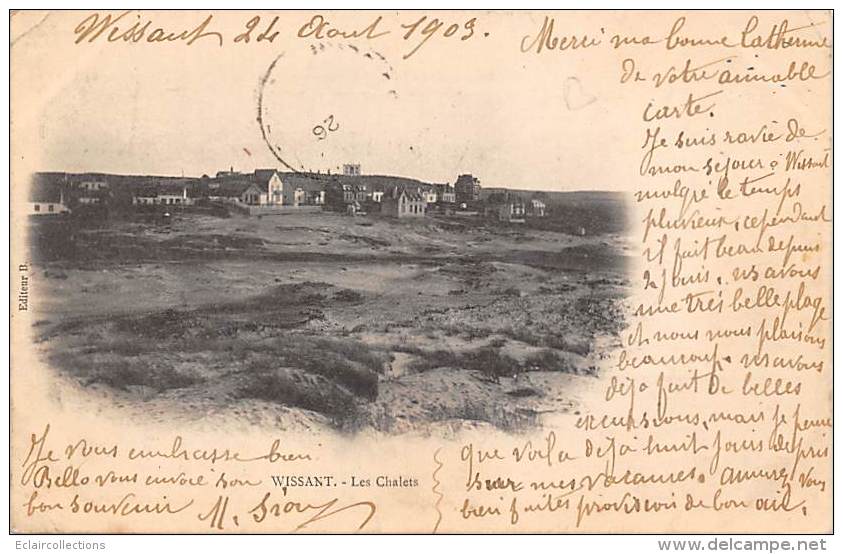 Wissant 24 Aout 1903.
26
Merci ma bonne Catherine
de votre aimable
carte.
Je suis ravie de
mon séjour à Wissant
malgré le temps
pluvieux, cependant
il fait beau depuis
2 jours, ns avons
une très belle plage
et nous nous plaisons
beaucoup. ns avons
déjà fait de belles
excursions, mais je pense
que voilà déjà huit jours de pris
sur mes vacances. Amusez vous
bien faites provision de bon air.
Je vous embrasse bien
Bello vous envoie son
bon souvenir M.
Editeur B.
WISSANT. - Les Chalets
Eclaircollections
www.delcampe.net